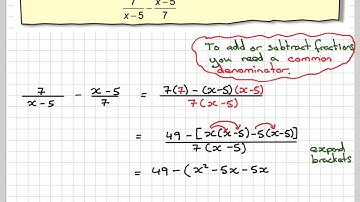 7/(x-5) - (x-5)/7
To add or subtract fractions
you need a common
denominator.
7/(x-5) - (x-5)/7 = (7(7) - (x-5)(x-5))/(7(x-5))
= (49 - [x(x-5) -5(x-5)])/(7(x-5))
expand
brackets
= 49 - (x² - 5x - 5x